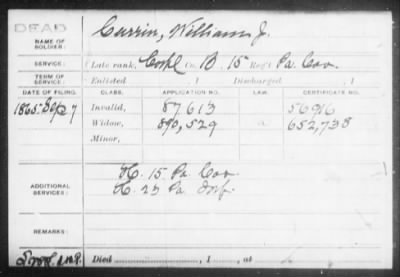 DEAD
NAME OF SOLDIER: Currin, William J.
SERVICE: Late rank, Corpl Co. B, 15 Reg't Pa. Cav.
TERM OF SERVICE: Enlisted , 1 Discharged , 1
DATE OF FILING. CLASS. APPLICATION NO. CERTIFICATE NO.
1865 27 Invalid, 87,613
Widow, 890,529 a 652,738
Minor,
ADDITIONAL SERVICES: H. 15 Pa. Cav.
H. 23 Pa. Inf.
REMARKS:
Died , 1 , at